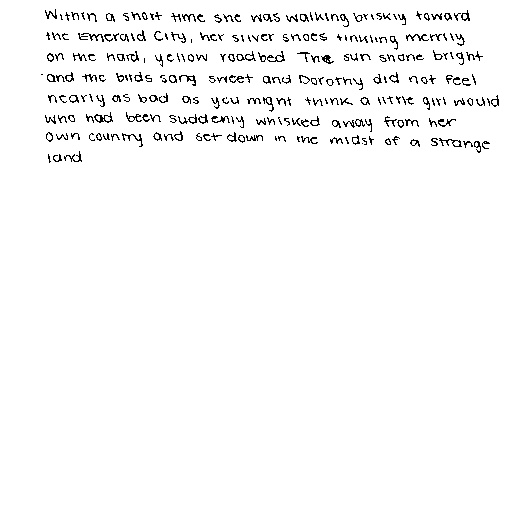 Within a short time she was walking briskly toward
the Emerald City, her silver shoes tinkling merrily
on the hard, yellow roadbed The sun shone bright
and the birds sang sweet and Dorothy did not feel
nearly as bad as you might think a little girl would
who had been suddenly whisked away from her
own country and set down in the midst of a strange
land